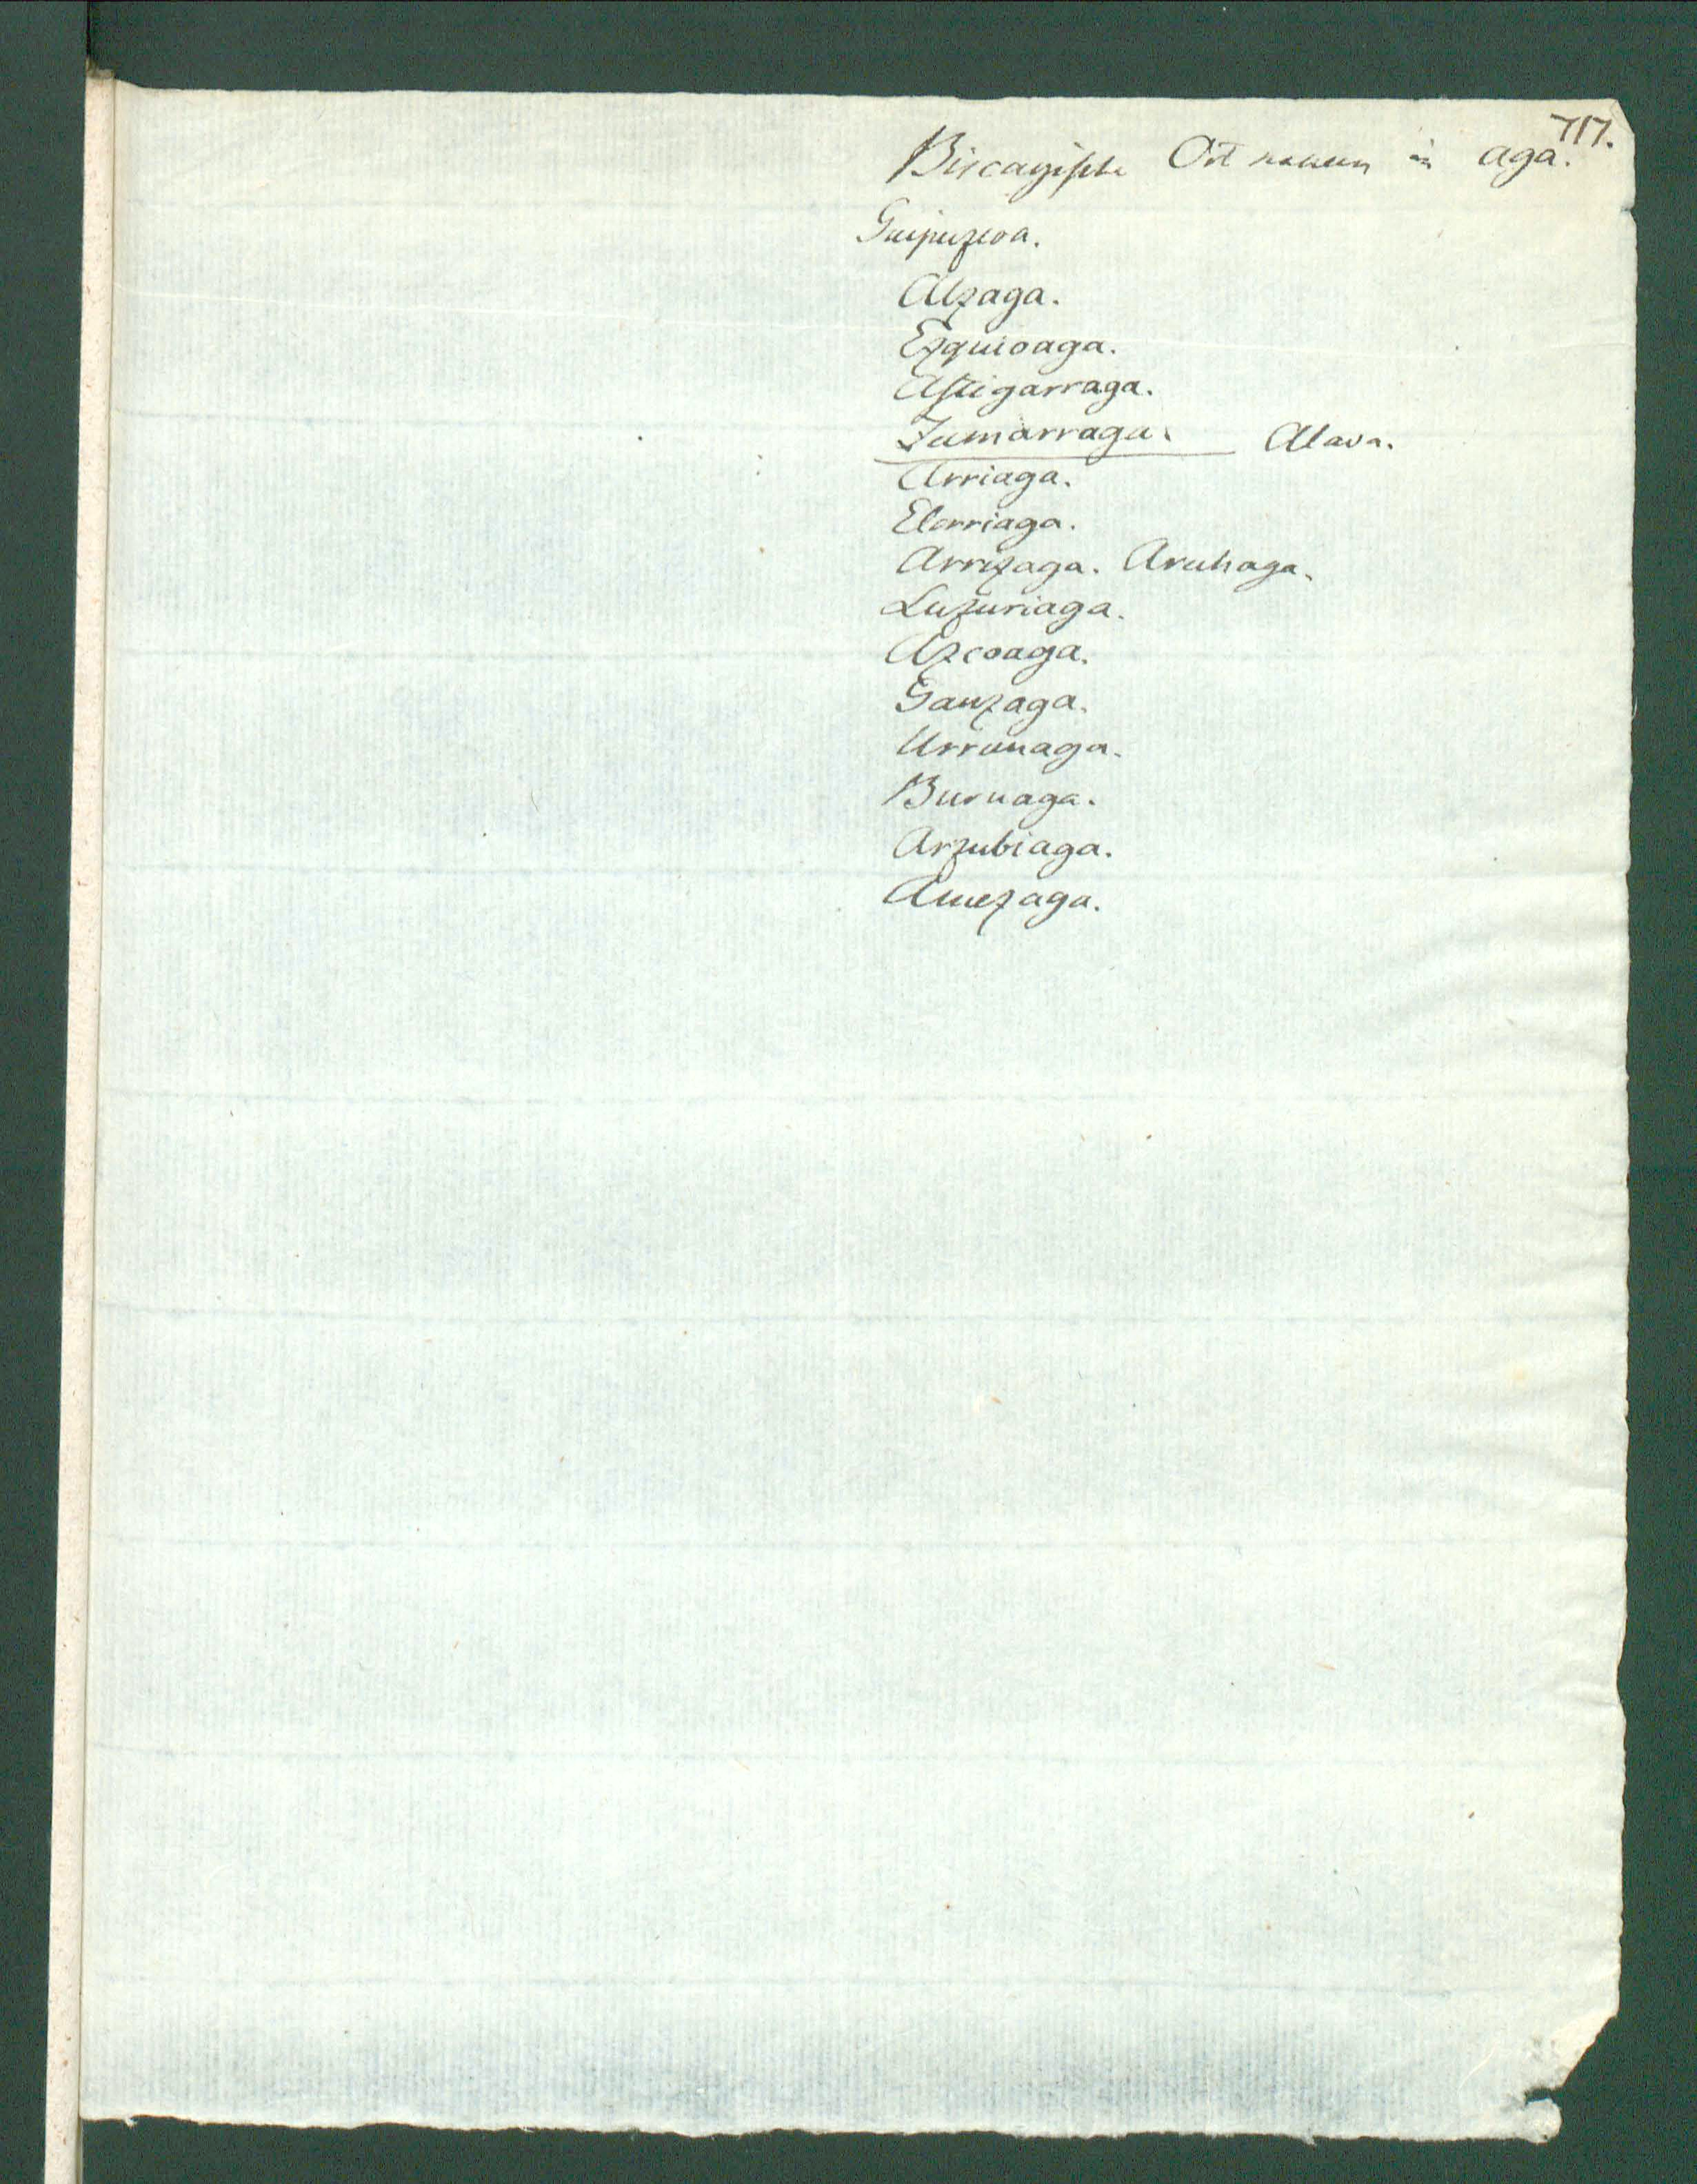 717.
Biscayische Ortnamen in aga.
Guipuzcoa.
Alzaga.
Ezquioaga.
Astigarraga.
Zumarraga. Alava.
Arriaga.
Elorriaga.
Arrizaga. Aruhaga.
Luzuriaga.
Azcoaga.
Ganzaga.
Urrunaga.
Burnaga.
Arzubiaga.
Amezaga.